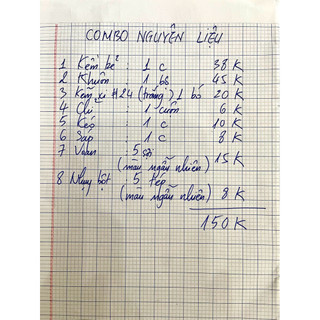 COMBO NGUYÊN LIỆU
1 Kềm bẻ : 1 c 38 K
2 Khuôn : 1 bộ 45 K
3 Kẽm xi #24 (trắng) 1 bó 20 K
4 Chỉ : 1 cuộn 6 K
5 Kéo : 1 c 10 K
6 Sáp : 1 c 8 K
7 Voan : 5 sợi
(màu ngẫu nhiên) 15 K
8 Nhụy bột : 5 tép
(màu ngẫu nhiên) 8 K
150 K